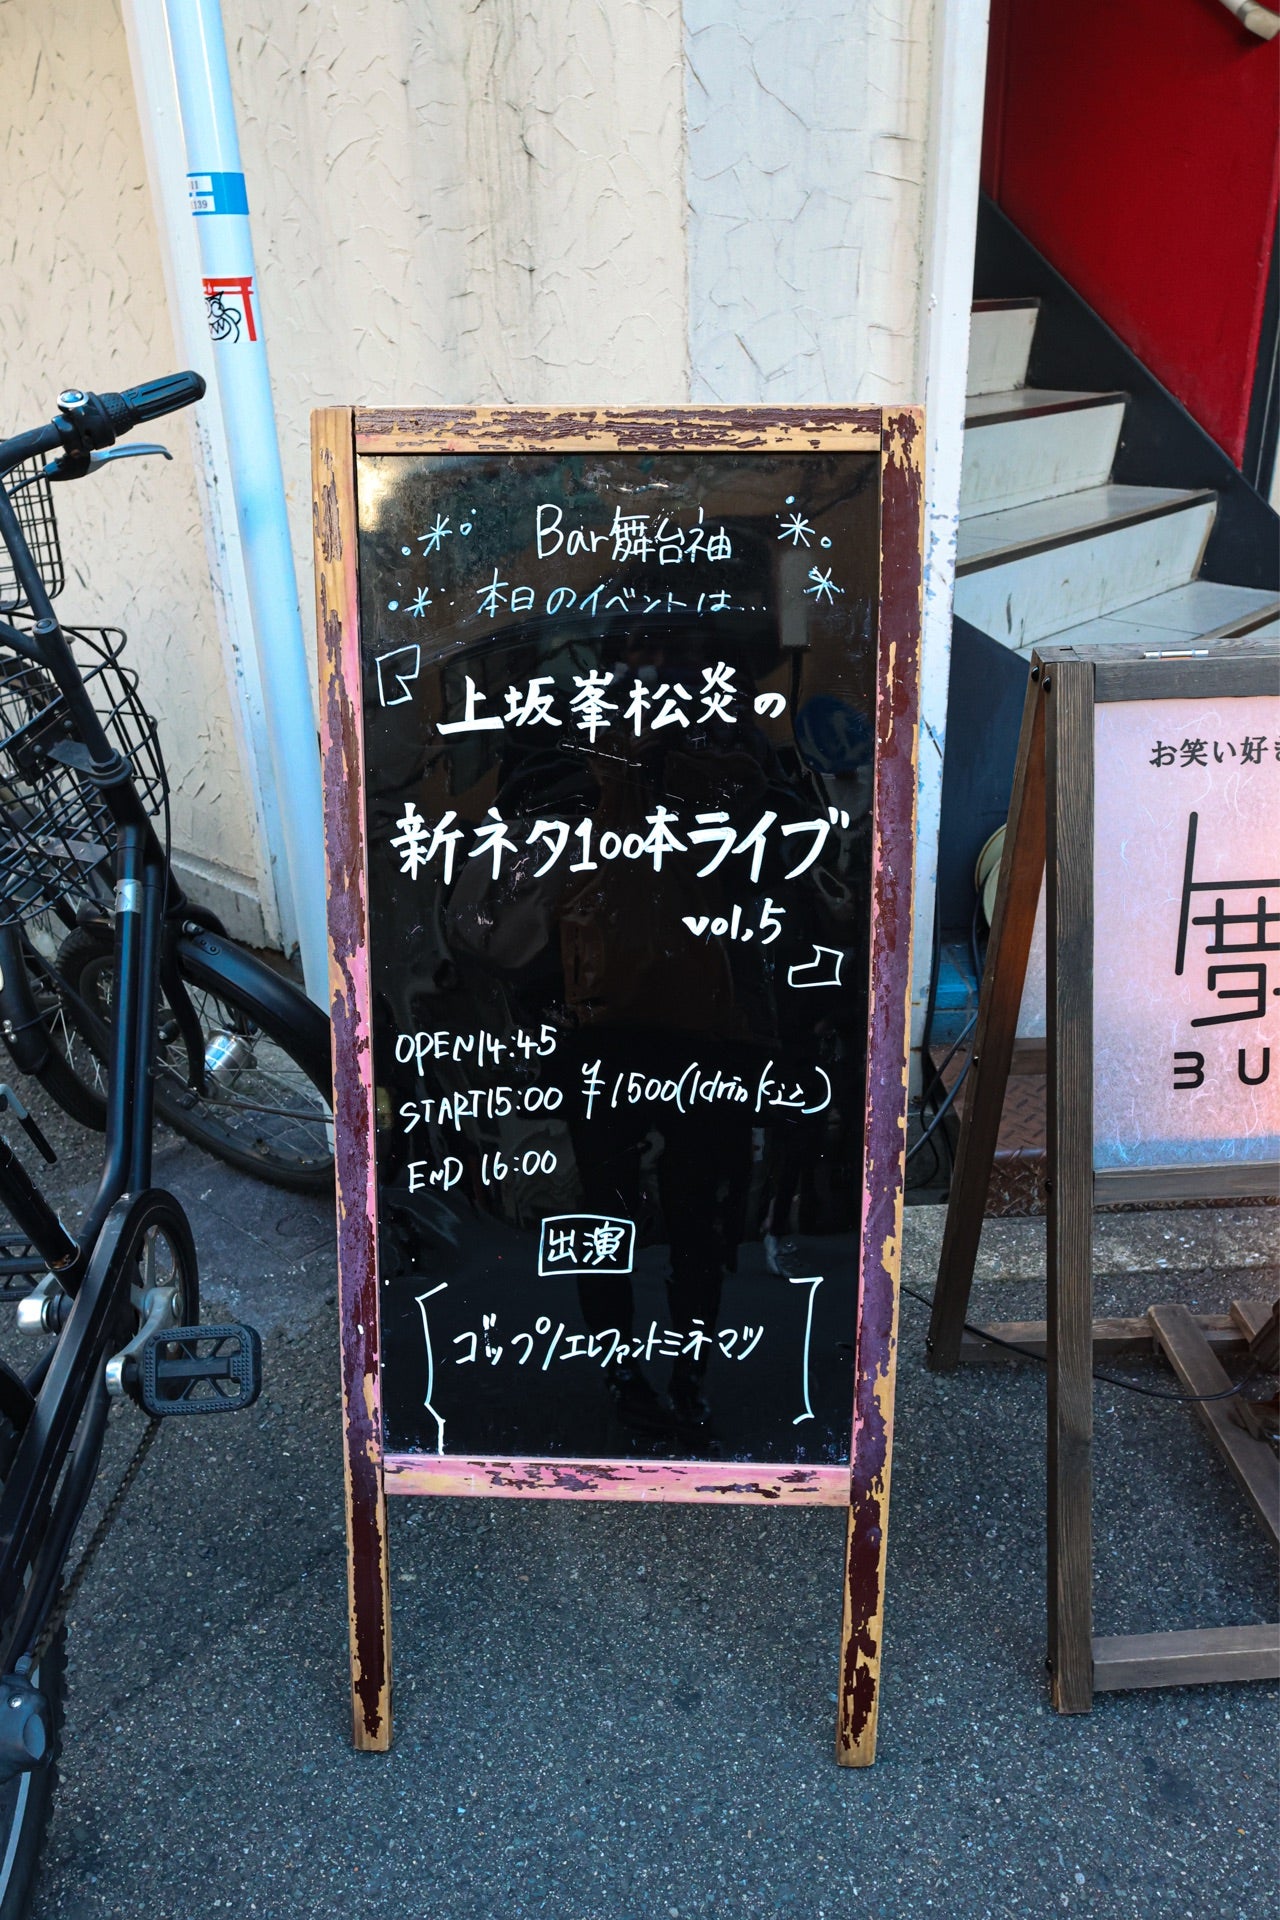 Bar舞台袖
本日のイベントは...
『上坂峯松炎の
新ネタ100本ライブ
vol,5』
OPEN14:45
START15:00 ¥1500(1drink込)
END 16:00
出演
ゴップ/エレファントミネマツ
お笑い好き
BU
11
139